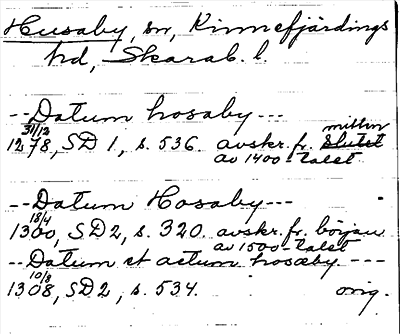 Husaby, sn, Kinnefjärdings
hd, Skarab. l.
--Datum hosaby---
31/12
mitten
1278, SD 1, s. 536. avskr. fr. slutet
av 1400-talet
--Datum Hosaby---
18/4
1300, SD2, s. 320. avskr. fr. början
av 1500-talet
--Datum et actum hosæby.---
10/8
1308, SD2, s. 534. orig.